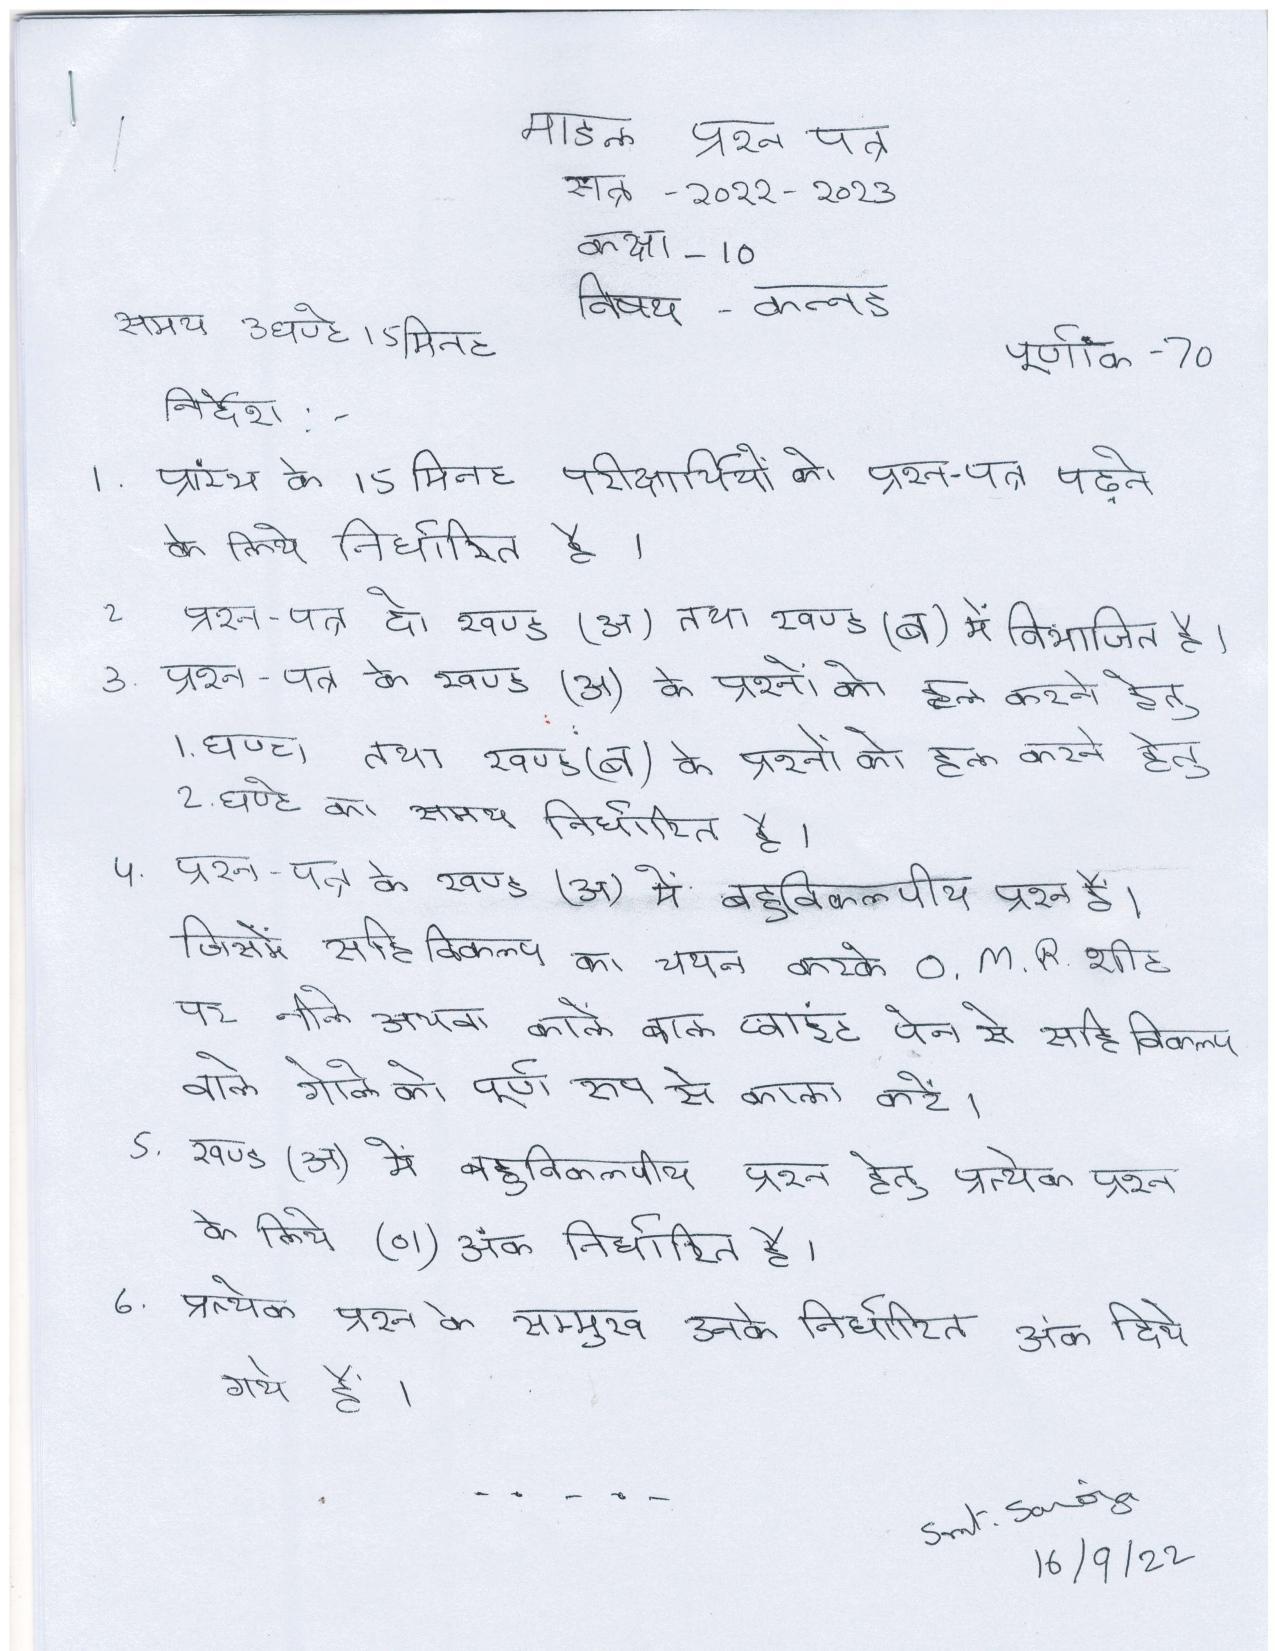 माडल प्रश्न पत्र
सत्र - २०२२ - २०२३
कक्षा - 10
विषय - कन्नड
समय 3घण्टे 15मिनट
पूर्णांक -70
निर्देश : -
1. प्रारंभ के 15 मिनट परीक्षार्थियों को प्रश्न-पत्र पढ़ने
के लिये निर्धारित है ।
2 प्रश्न-पत्र दो खण्ड (अ) तथा खण्ड (ब) में विभाजित है ।
3. प्रश्न - पत्र के खण्ड (अ) के प्रश्नों को हल करने हेतु
1. घण्टा तथा खण्ड (ब) के प्रश्नों को हल करने हेतु
2. घण्टे का समय निर्धारित है ।
4. प्रश्न - पत्र के खण्ड (अ) में बहुविकल्पीय प्रश्न हैं ।
जिसमें सहि विकल्प का चयन करके O. M. R. शीट
पर नीले अथवा काले बाल प्वाइंट पेन से सहि विकल्प
वाले गोले को पूर्ण रूप से काला करें ।
5. खण्ड (अ) में बहुविकल्पीय प्रश्न हेतु प्रत्येक प्रश्न
के लिये (01) अंक निर्धारित है ।
6. प्रत्येक प्रश्न के सम्मुख उनके निर्धारित अंक दिये
गये हैं ।
Smt. Saroja
16/9/22